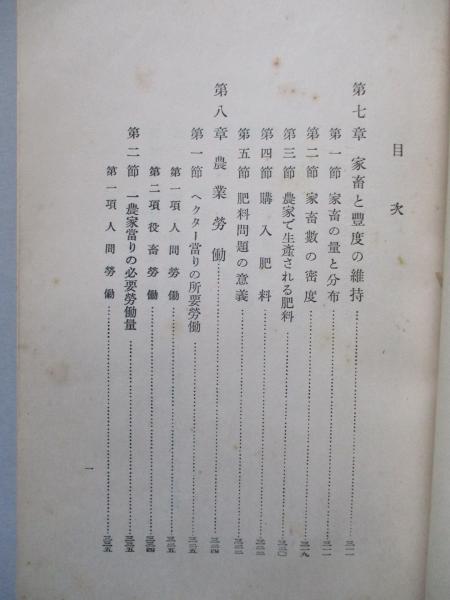 目次
第七章 家畜と豐度の維持……三一一
第一節 家畜の量と分布……三一一
第二節 家畜數の密度……三一九
第三節 農家で生產される肥料……三二〇
第四節 購入肥料……三二二
第五節 肥料問題の意義……三二三
第八章 農業勞働……三二四
第一節 ヘクター當りの所要勞働……三二五
第一項 人間勞働……三二五
第二項 役畜勞働……三三四
第二節 一農家當りの必要勞働量……三三五
第一項 人間勞働……三三五
一